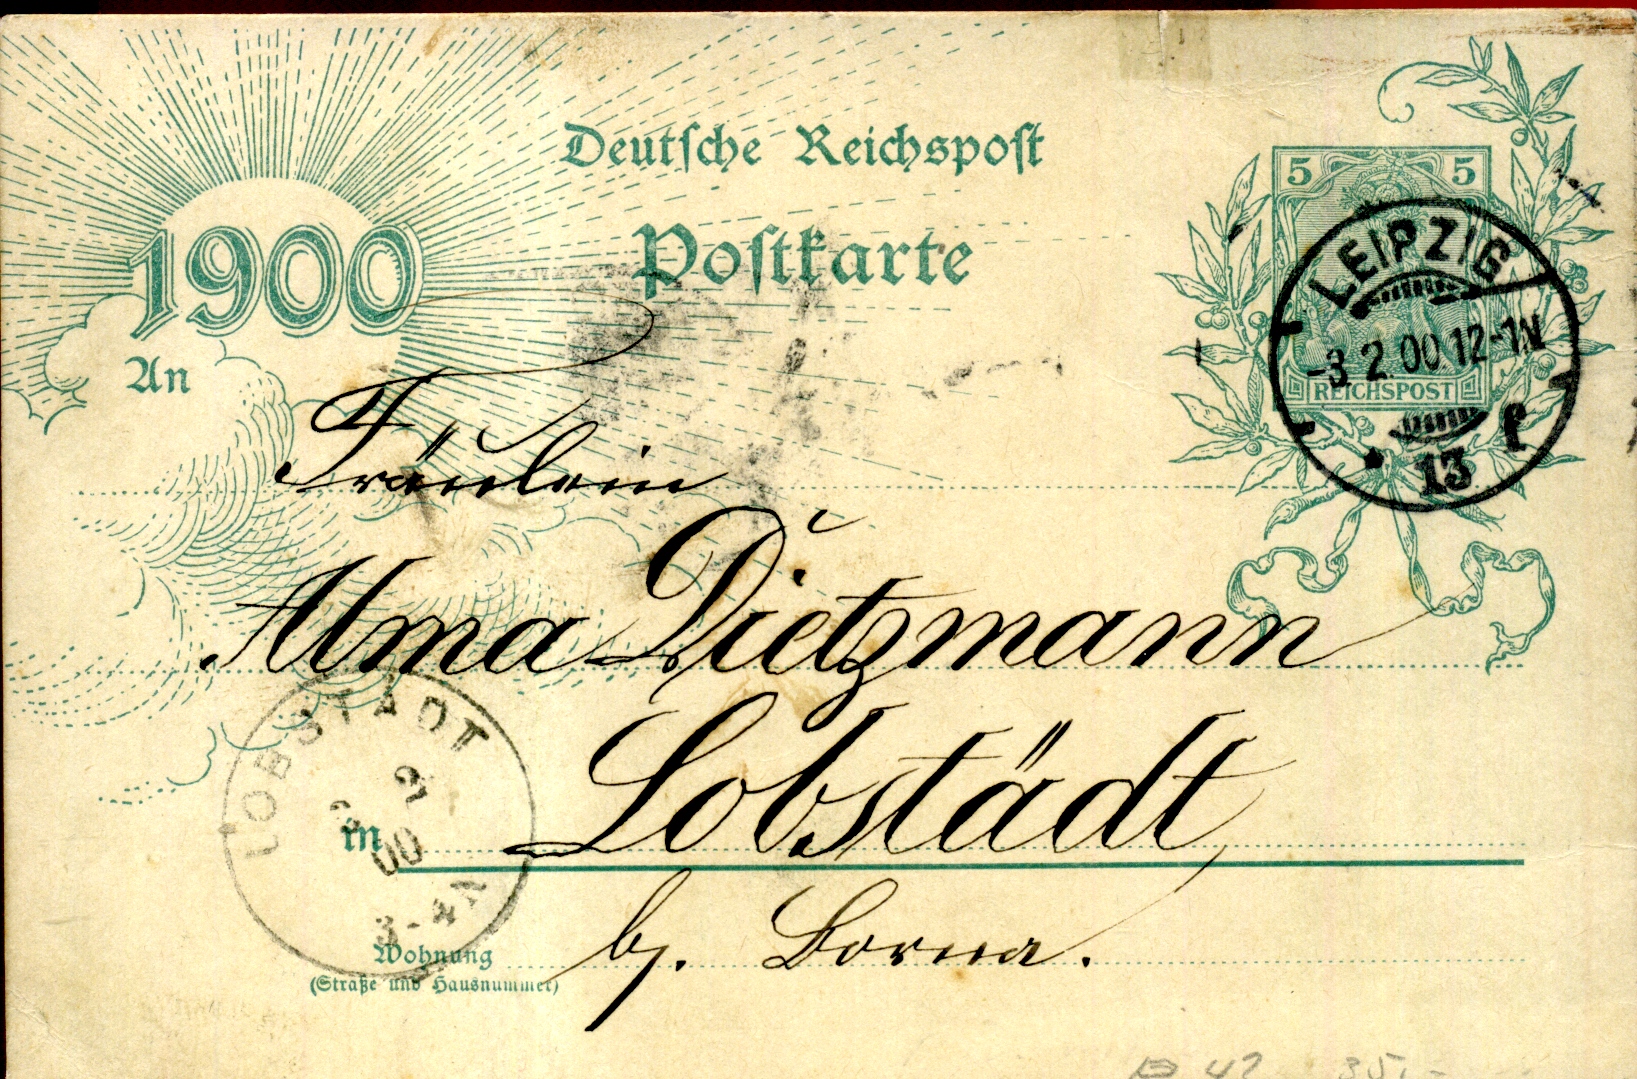 Deutsche Reichspost
Postkarte
1900
An
5 5
REICHSPOST
LEIPZIG
-3.2.00.12-1N
* 13 f
Fräulein
Alma Dietzmann
in Lobstädt
LOBSTÄDT
2
00
3-4N
bz. Borna.
Wohnung
(Straße und Hausnummer)
35,-